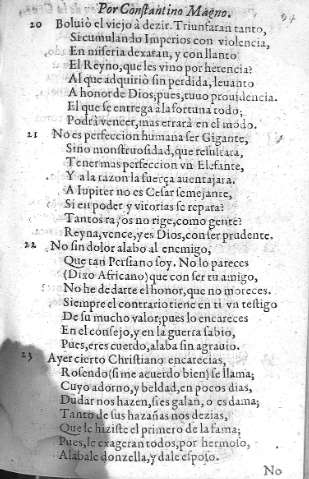 Por Constantino Magno. 94
20 Boluiò el viejo à dezir. Triunfaran tanto,
Si cumulando Imperios con violencia,
En miseria dexaran, y con llanto
El Reyno, que les vino por herencia?
Al que adquiriò sin perdida, leuanto
A honor de Dios, pues, tuuo prouidencia.
El que se entrega à la fortuna todo;
Podrà vencer, mas errarà en el modo.
21 No es perfeccion humana ser Gigante,
Sino monstruosidad, que resultara,
Tener mas perfeccion vn Elefante,
Y a la razon la fuerça auentajara.
A Iupiter no es Cesar semejante,
Si en poder y vitorias se repara?
Tantos rayos no rige, como gente?
Reyna, vence, y es Dios, con ser prudente.
22 No sin dolor alabo al enemigo,
Que tan Persiano soy. No lo pareces
(Dixo Africano) que con ser tu amigo,
No he de darte el honor, que no mereces.
Siempre el contrario tiene en ti vn testigo
De su mucho valor; pues lo encareces
En el consejo, y en la guerra sabio,
Pues, eres cuerdo, alaba sin agrauio.
23 Ayer cierto Christiano encarecias,
Rosendo (si me acuerdo bien) se llama;
Cuyo adorno, y beldad, en pocos dias,
Dudar nos hazen, si es galan, o es dama;
Tanto de sus hazañas nos dezias,
Que le hiziste el primero de la fama;
Pues, le exageran todos, por hermoso,
Alabale donzella, y dale esposo.
No